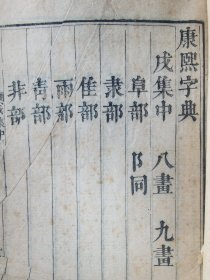 康熙字典
戌集中　八畫　九畫
阜部　阝同
隶部
隹部
雨部
靑部
非部